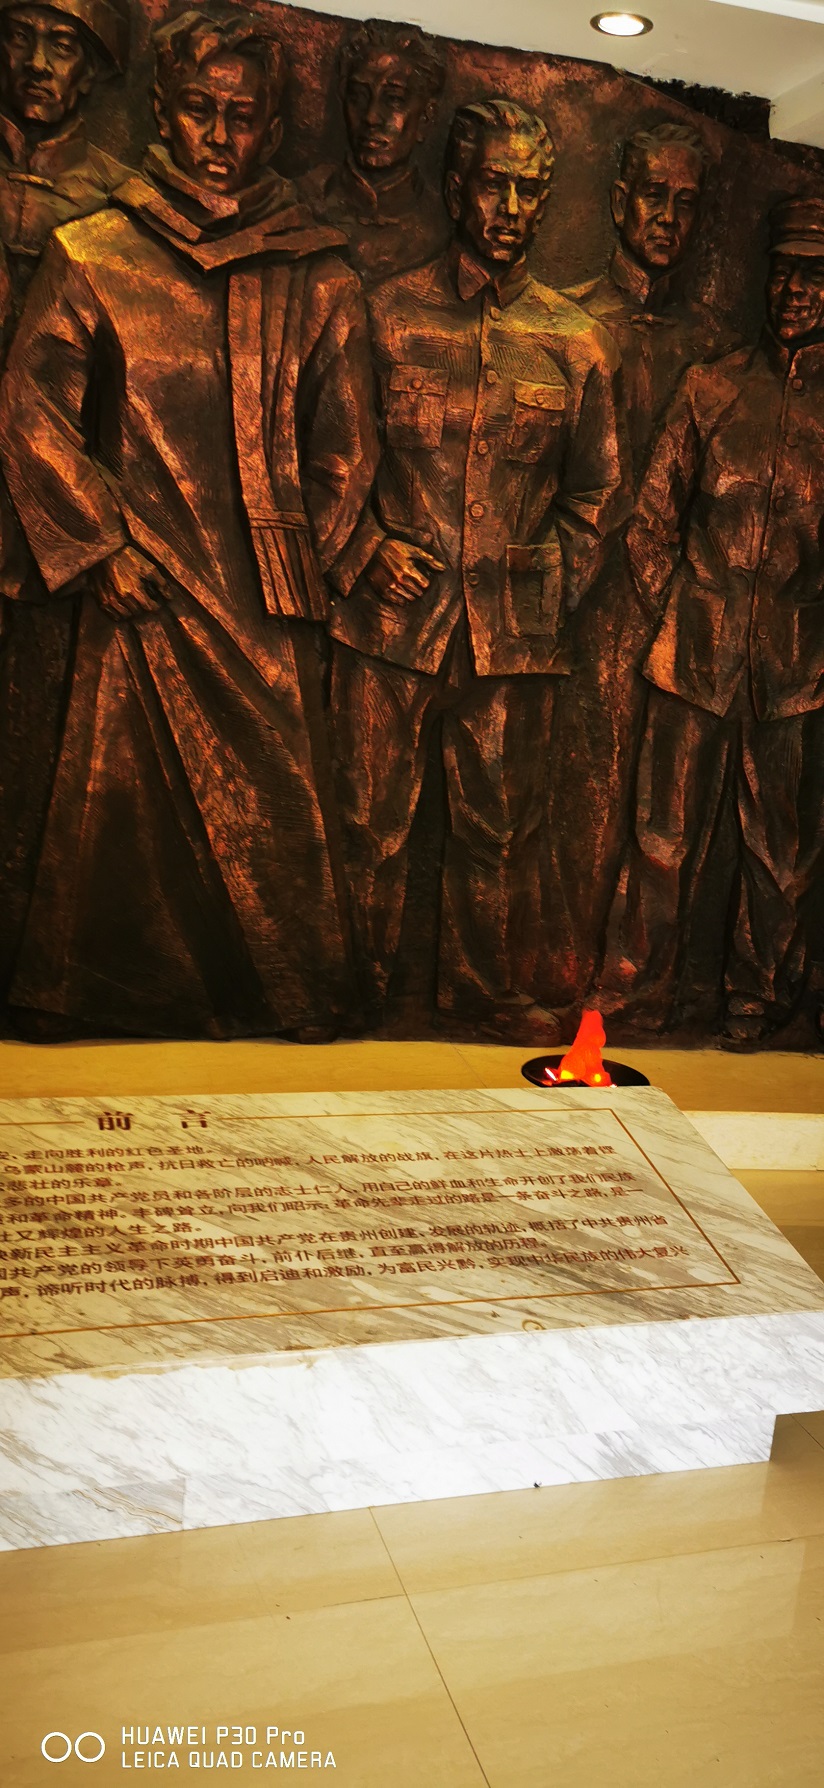 前 言
安、走向胜利的红色圣地。
乌蒙山麓的枪声，抗日救亡的呐喊，人民解放的战旗，在这片热土上激荡着铿
悲壮的乐章。
多的中国共产党员和各阶层的志士仁人，用自己的鲜血和生命开创了我们民族
和革命精神。丰碑耸立，向我们昭示：革命先辈走过的路是一条奋斗之路，是一
壮又辉煌的人生之路。
映新民主主义革命时期中国共产党在贵州创建、发展的轨迹，概括了中共贵州省
国共产党的领导下英勇奋斗，前仆后继，直至赢得解放的历程。
声，谛听时代的脉搏，得到启迪和激励，为富民兴黔，实现中华民族的伟大复兴
HUAWEI P30 Pro
LEICA QUAD CAMERA